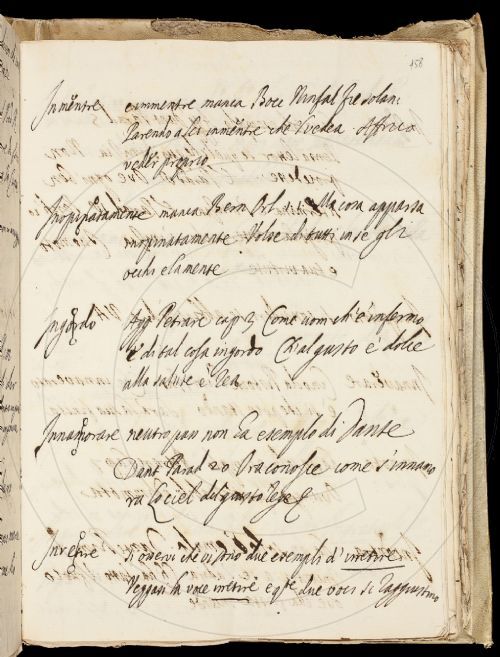 158
Inmentre eimmentre manca Bocc Ninfal Fiesolan:
Parendo a lei inmentre che vedea Affrico
veder proprio
Inopinatamente manca Bern Orl. Ma cosa apparsa
inopinatamente Volse di tutti in se gli
occhi e la mente
Ingordo Agg Petrarc cap 3 Come uom ch'è infermo
e di tal cosa ingordo Ch'al gusto è dolce
alla salute è rea
Innamorare neutro pass non ha esempio di Dante
Dant Parad 20 Ora conosce come s'innamo
ra Lo ciel del giusto rege
Inretire si osservi che vi sono due esempli d'irretire
Veggasi la voce irretire e queste due voci si raggiustino